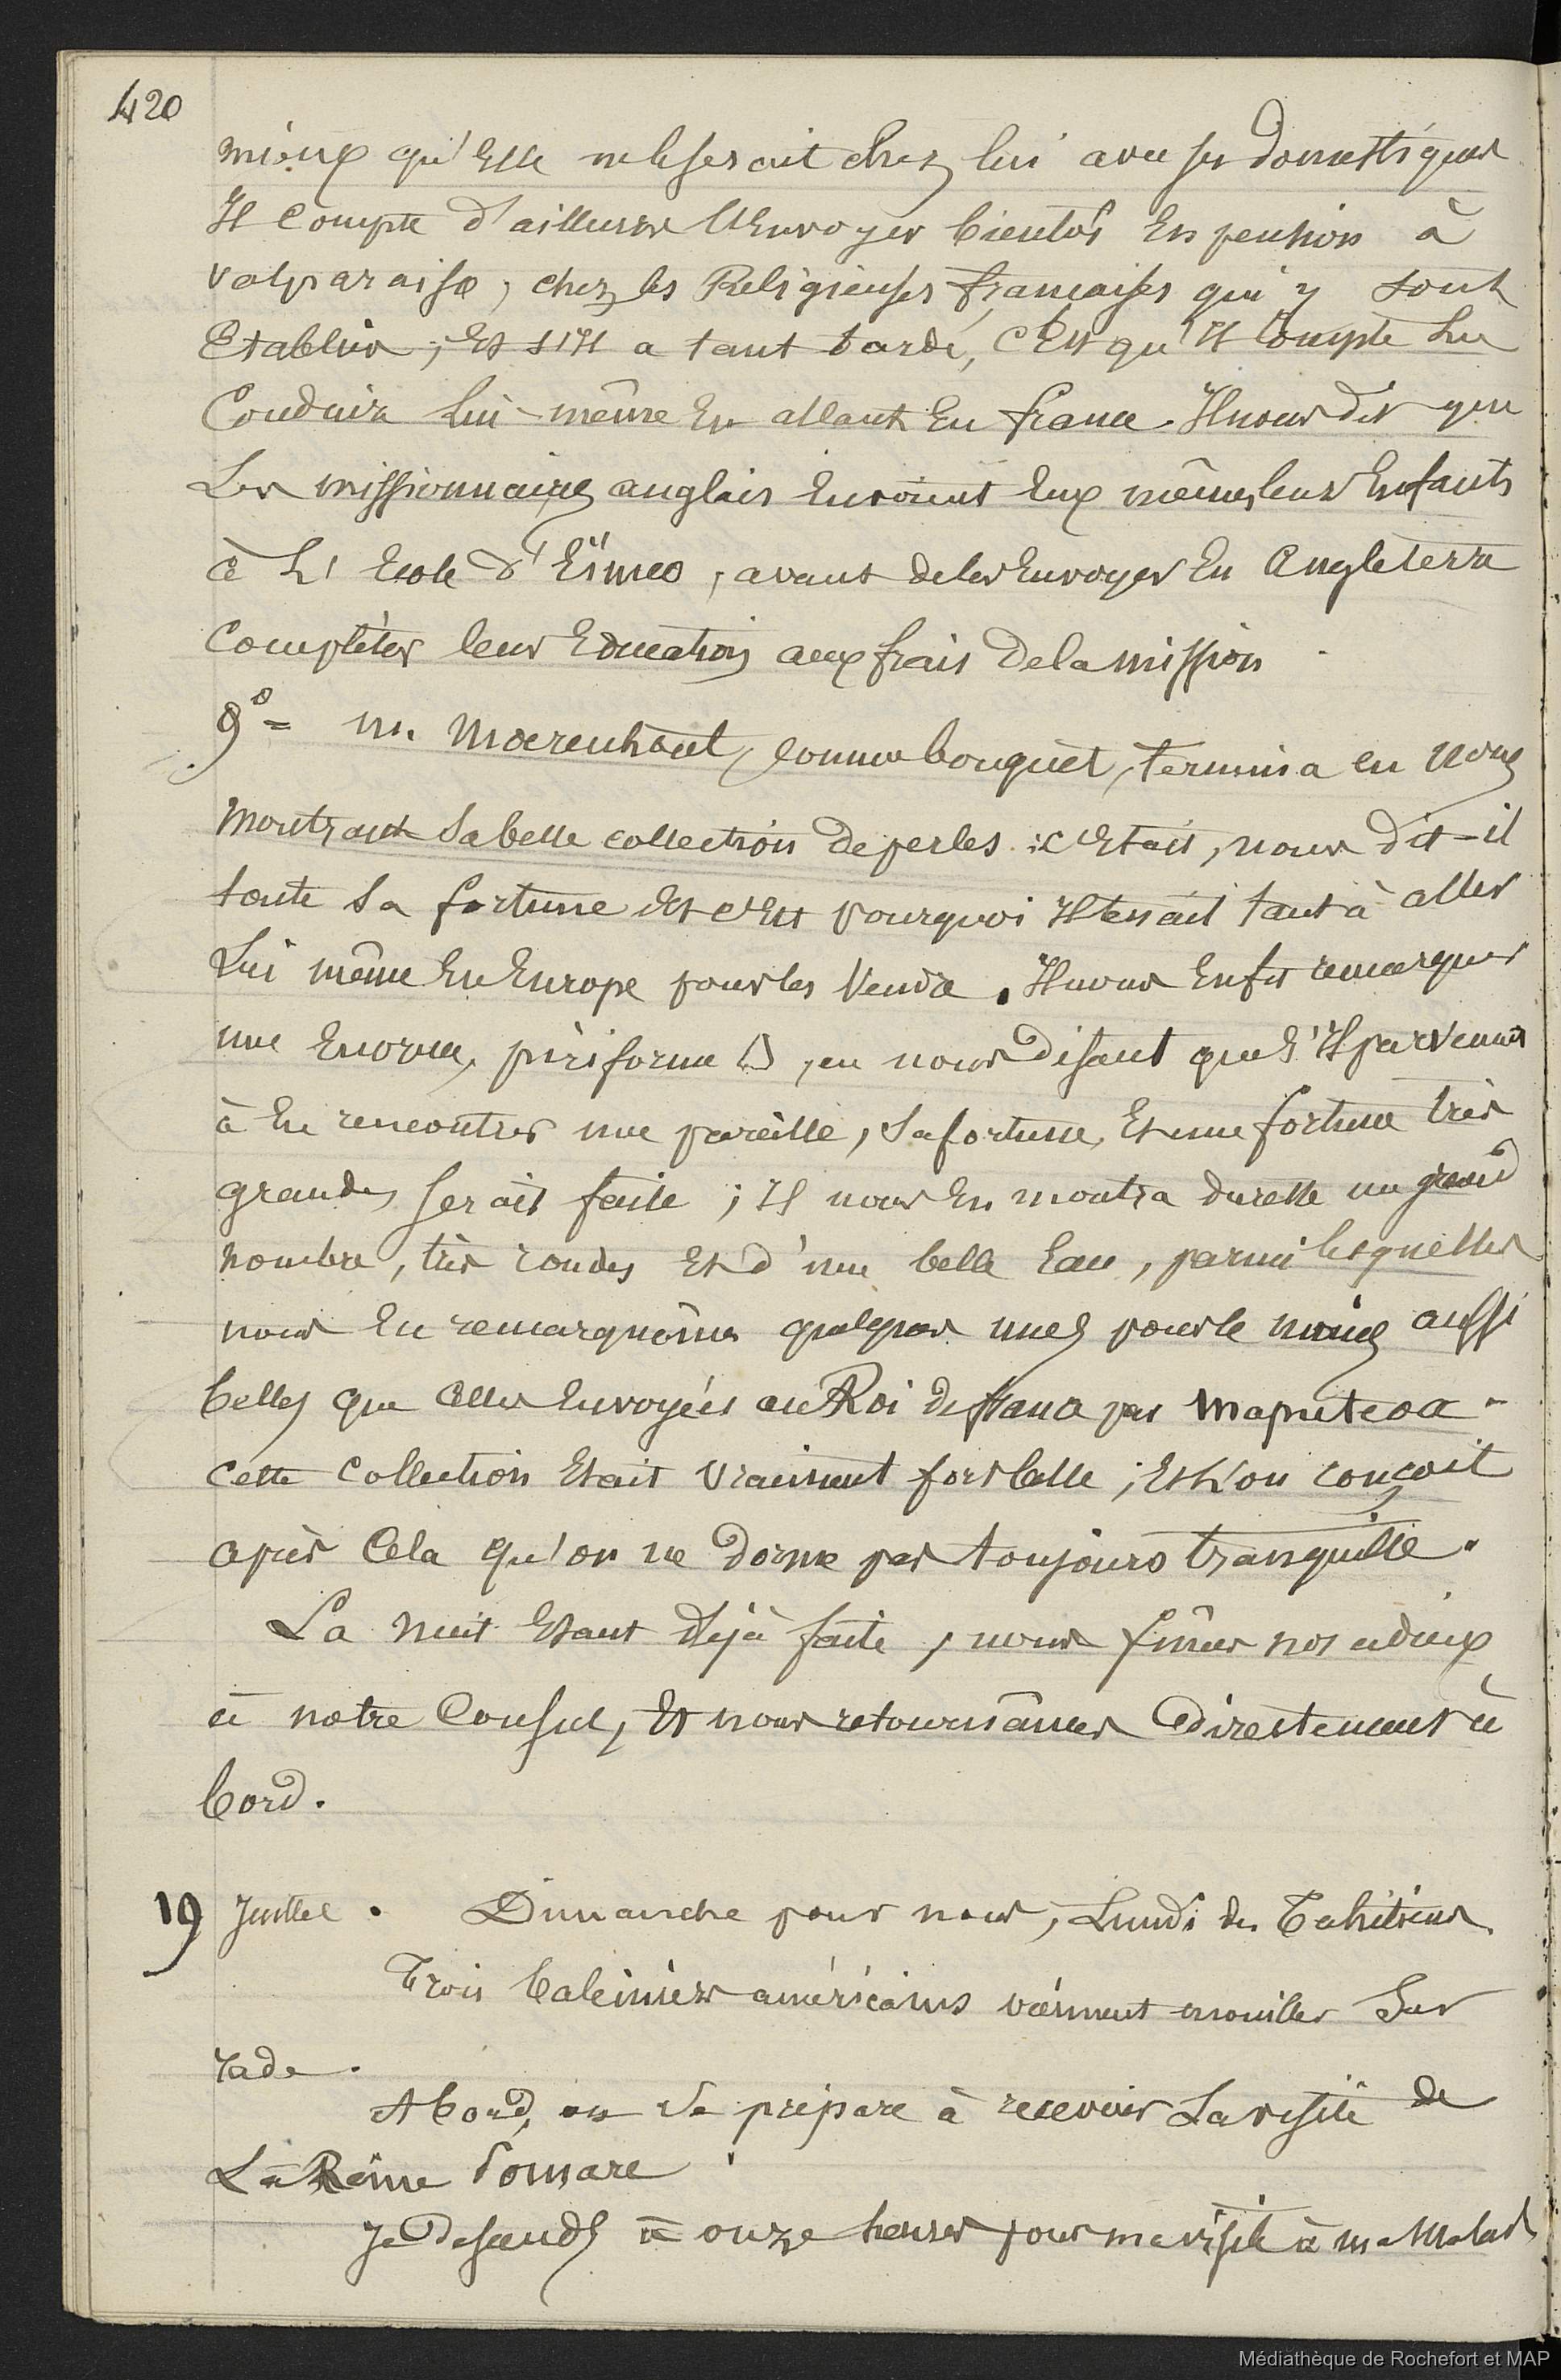 420
mieux qu'Elle ne le serait chez lui avec ses Domestiques
Il compte d'ailleurs l'Envoyer bientôt En pension à
Valparaiso, chez les Religieuses françaises qui y sont
Etablies ; Et s'Il a tant tardé, c'Est qu'Il compte L'y
Conduire lui-même En allant En france. Il nous dit que
Les missionnaires anglais Envoient Eux mêmes leurs Enfants
à L'Ecole d'Eïmeo, avant de les Envoyer En Angleterre
Compléter leur Education aux frais de la mission.
9°= M. Moerenhout, comme bouquet, termina en nous
Montrant sa belle collection de perles : c'Etait, nous dit-il
toute sa fortune Et c'Est pourquoi Il tenait tant à aller
Lui même En Europe pour les Vendre. Il nous En fit remarquer
une Enorme, piriforme, en nous disant que s'Il parvenait
à En rencontrer une pareille, sa fortune, Et une fortune très
grande, serait faite ; Il nous En montra du reste un grand
nombre, très rondes Et d'une belle Eau, parmi lesquelles
nous En remarquâmes quelques unes pour le moins aussi
belles que celles Envoyées au Roi de france par Maputeoa.
Cette Collection Etait vraiment fort belle ; Et l'on conçoit
après Cela qu'on ne dorme pas toujours tranquille.
La nuit Etant déjà faite, nous fîmes nos adieux
à notre Consul, Et nous retournâmes Directement à
bord.
19 Juillet. Dimanche pour nous, Lundi des Tahitiens.
Trois baleiniers américains viennent mouiller Sur
rade.
A bord, on se prépare à recevoir La visite de
La Reine Pomare.
Je Descends à onze heures pour ma visite à ma Malade
Médiathèque de Rochefort et MAP